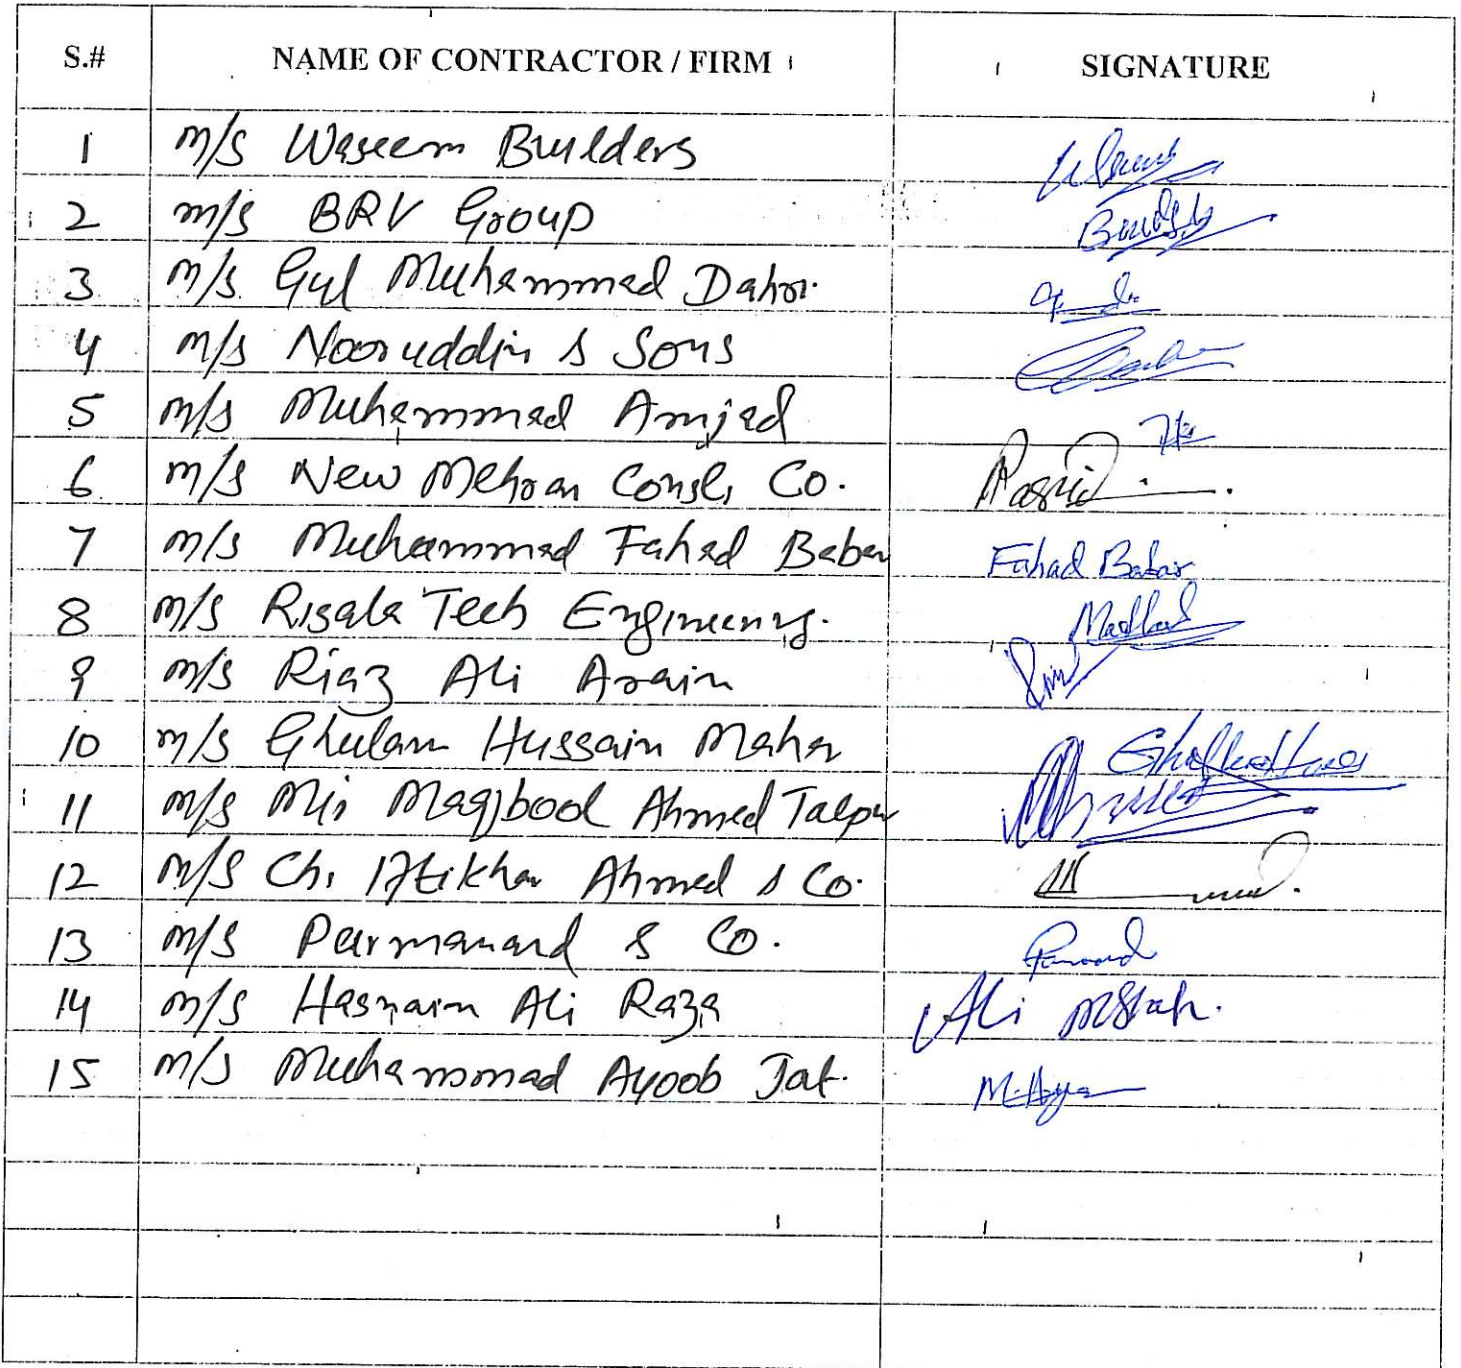 S.# NAME OF CONTRACTOR / FIRM SIGNATURE
1 m/s Waseem Builders
2 m/s BRV Group
3 m/s Gul Muhammad Dahri.
4 m/s Nooruddin & Sons
5 m/s Muhammad Amjad
6 m/s New Mehran Const, Co. Rashid
7 m/s Muhammad Fahad Babar Fahad Babar
8 m/s Risala Tech Engineering.
9 m/s Riaz Ali Arain
10 m/s Ghulam Hussain Mahar
11 m/s Mir Maqbool Ahmed Talpur
12 m/s Ch, Iftikhar Ahmed & Co.
13 m/s Parmanand & Co.
14 m/s Hasnain Ali Raza Ali
15 m/s Muhammad Ayoob Jat.